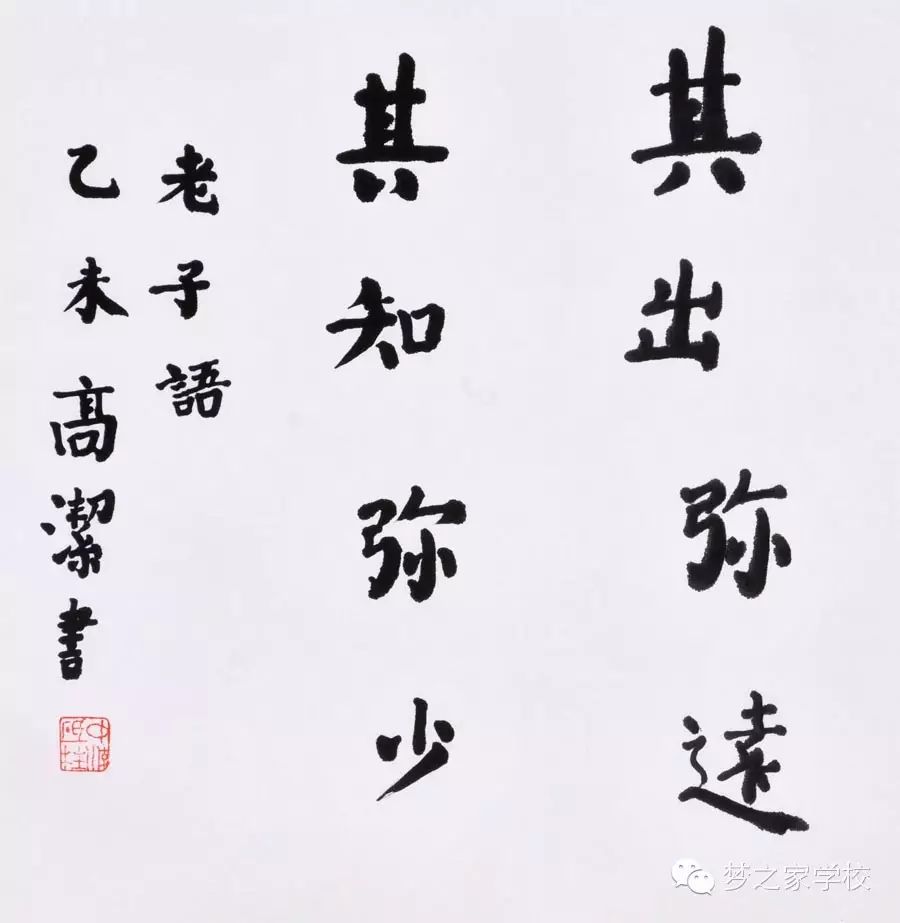 其出弥遠
其知弥少
老子語
乙未高潔書
梦之家学校